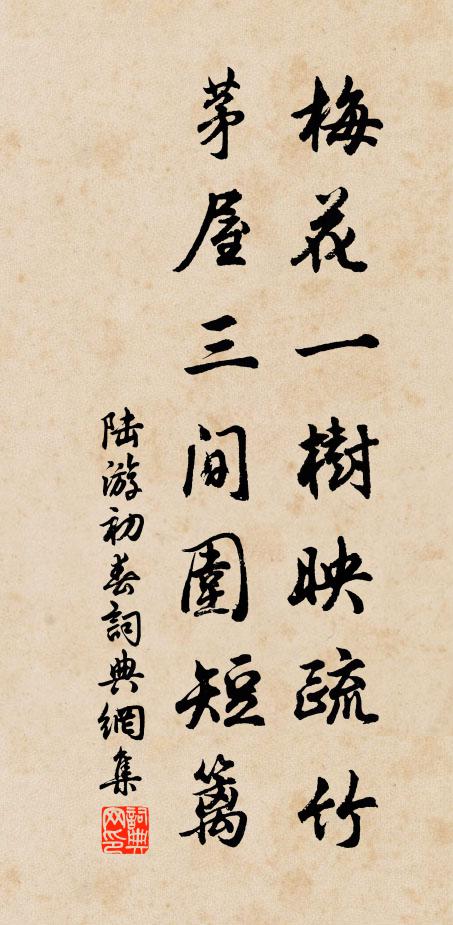 梅花一樹映疏竹
茅屋三間圍短籬
陆游初春詞典網集
詞典网印